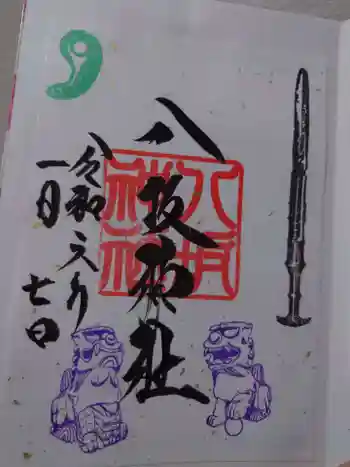 八坂神社
令和六年
一月七日
八坂神社